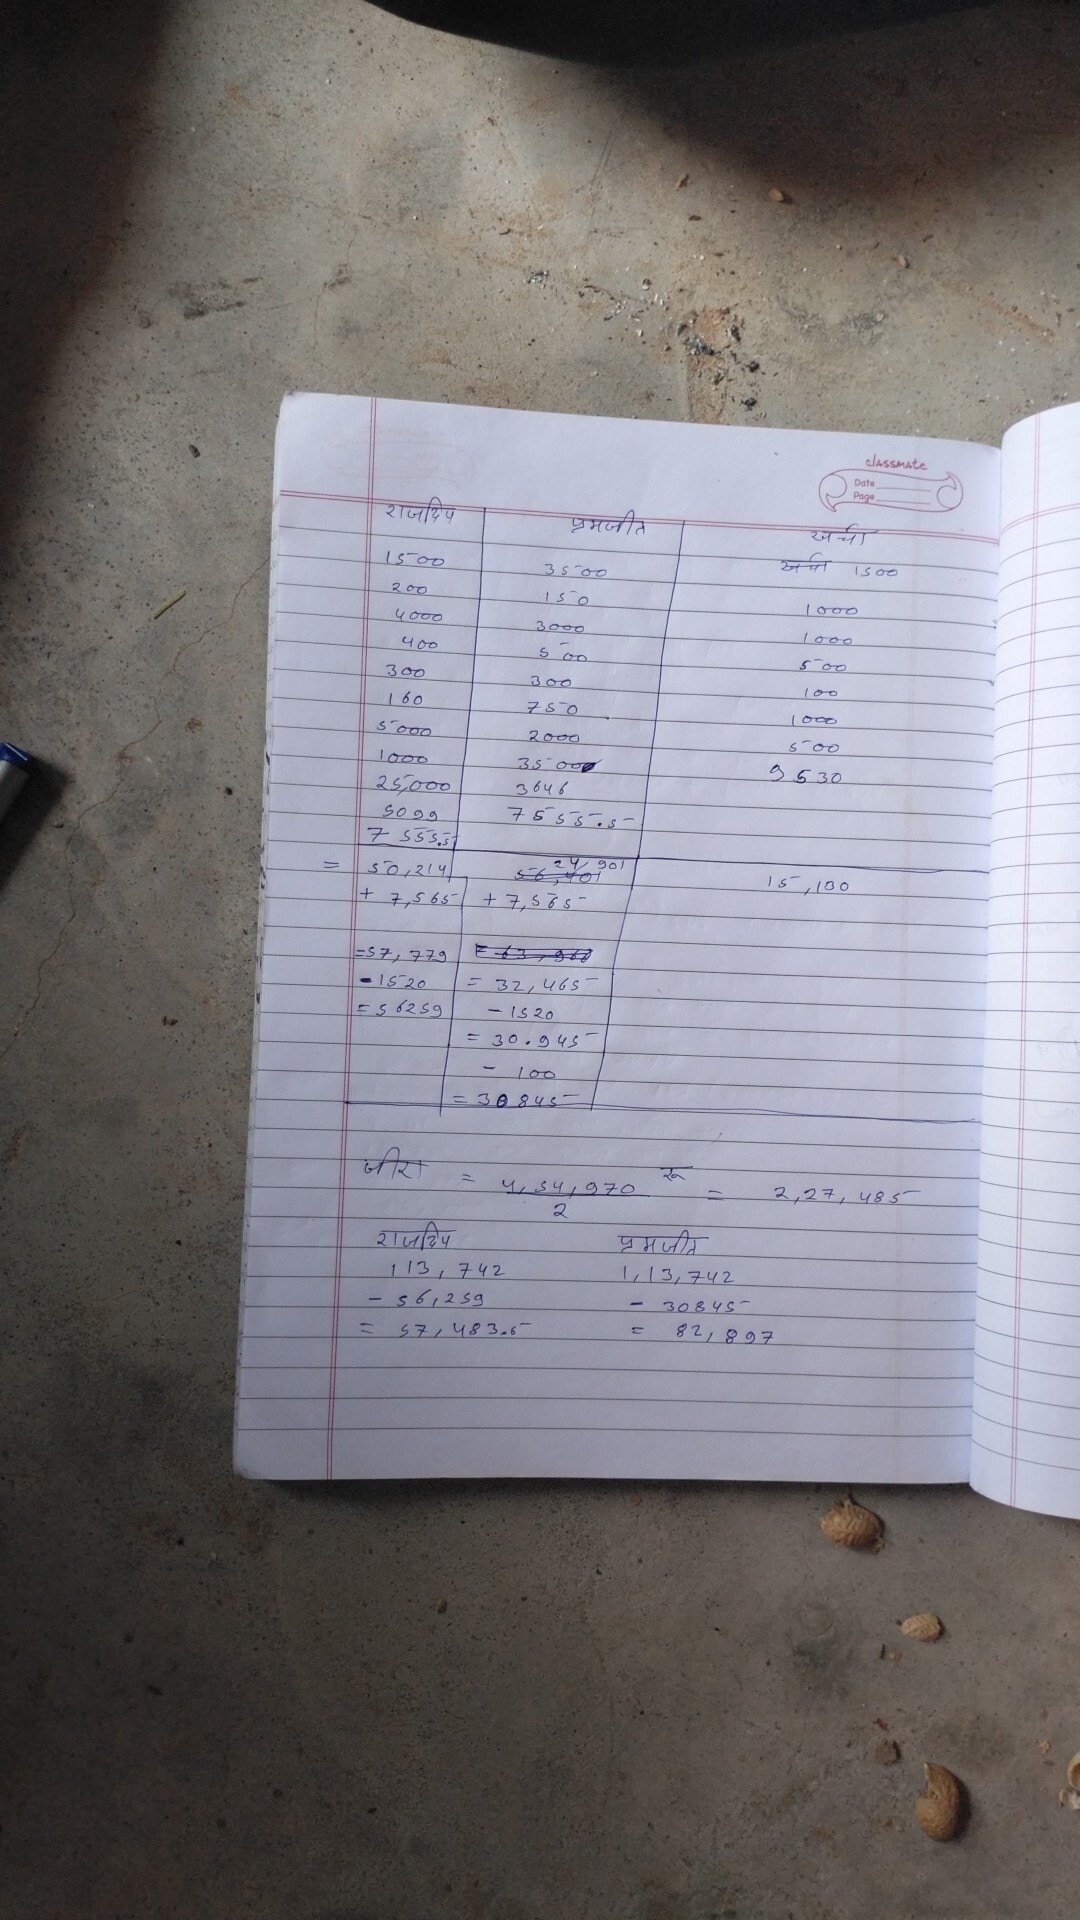 classmate
Date
Page
राजदिप प्रमजीत खर्चा
1500 3500 खर्चा 1500
200 150 1000
4000 3000 1000
400 500 500
300 300 100
160 750 1000
5000 2000 500
1000 3500 9530
25,000 3646
5099 7555.5
7555.5
= 50,214 24,901 15,130
+ 7,565 + 7,565
= 57,779
- 1520 = 32,465
= 56259 - 1520
= 30.945
- 100
= 30845
जीरा = 4,54,970 रू = 2,27,485
2
राजदिप प्रमजीत
113,742 1,13,742
- 56,259 - 30845
= 57,483.5 = 82,897